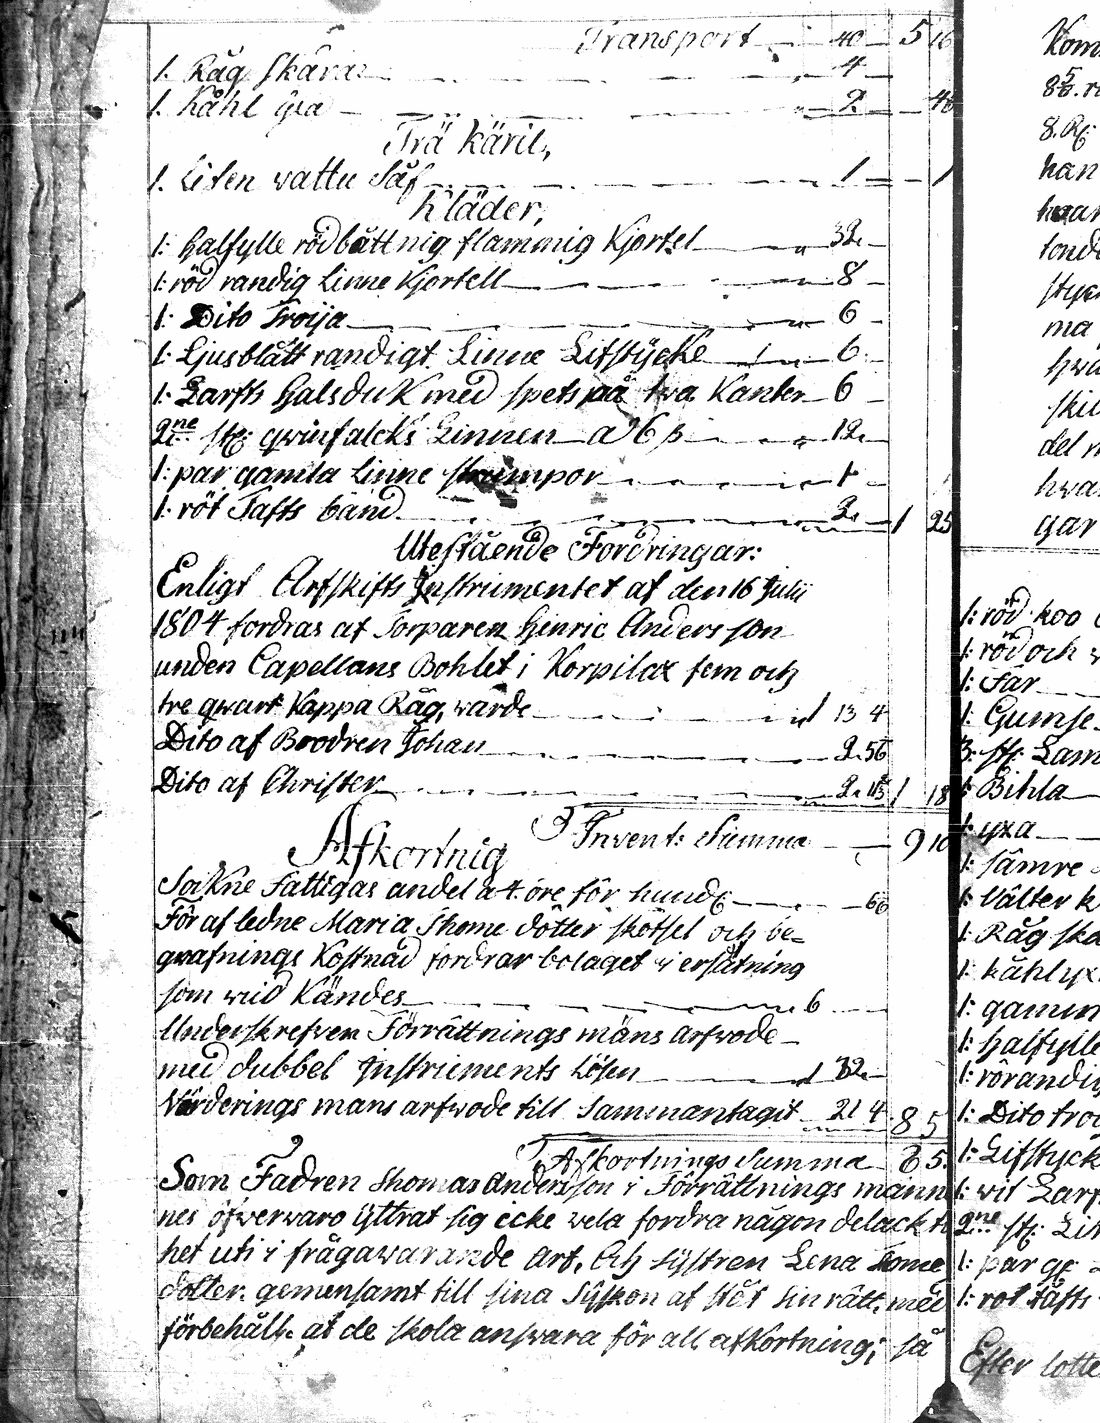 Transport 40 5 16
1. Råg Skära 4
1. Kåhl yxa 2 46
Trä käril,
1. Liten vattu Såf 1 1
Kläder,
1: halfylle rödbåttnig flammig Kjortel 32
1: röd randig Linne Kjortell 8
1: Dito Troija 6
1: Ljusblått randigt Linne Lifstycke 6
1: Larfts halsduk med spets på twa Kanter 6
2ne st: qwinfalcks Linnen a 6 β 12
1: par gamla Linne strumpor 1
1: röt Tafts band 2 1 25
Utestående Fordringar:
Enligt Arfskifts Instrumentet af den 16 Julii
1804 fordras af Torparen Hinric Andersson
unden Capellans Bohlet i Korpilax fem och
tre qwart Kappa Råg, wärde 1 13 4
Dito af Brodren Johan 2 56
Dito af Christer 2 1 18
Invent: Summa 9 10
Afkortnig
Sockne Fattigas andel a t öre för hund: 6
För afledne Maria Thome dotter skötsel och be=
grafnings Kostnad fordrar bolaget i ersätning
som wid Kändes 6
Underskrefven Förrättnings mäns arfwode
med dubbel Instruments Lösen 1 32
Värderings mans arfwode till Sammantagit 21 4 8 5
Afkortnings Summa 8 5
Som Fadren Thomas Andersson i Förrättnings männ
nes öfwerwaro yttrat sig ecke vela fordra någon delack ti
het uti i frågawarande Arf. Och Systren Lena Tome
dotter. gemensamt till sina Syskon af stöt sin rätt. med
förbehåll. at de skola answara för all afkortning; så
Kom
8. R:
han
tond
styc
ma
hwa
skil
del
hwa
gar
1: röd koo
1: röd och
1: Får
1: Gumse
3: st: Lam
1: Bihla
1: yxa
1: sämre
1: Välter k
1: Råg ska
1: kåhlyx
1: gamm
1: halfylle
1: rörandig
1: Dito troi
1: Lifstyck
1: wit Larf
2ne st: Lin
1: par ga
1: rot tafts
Efter lotte